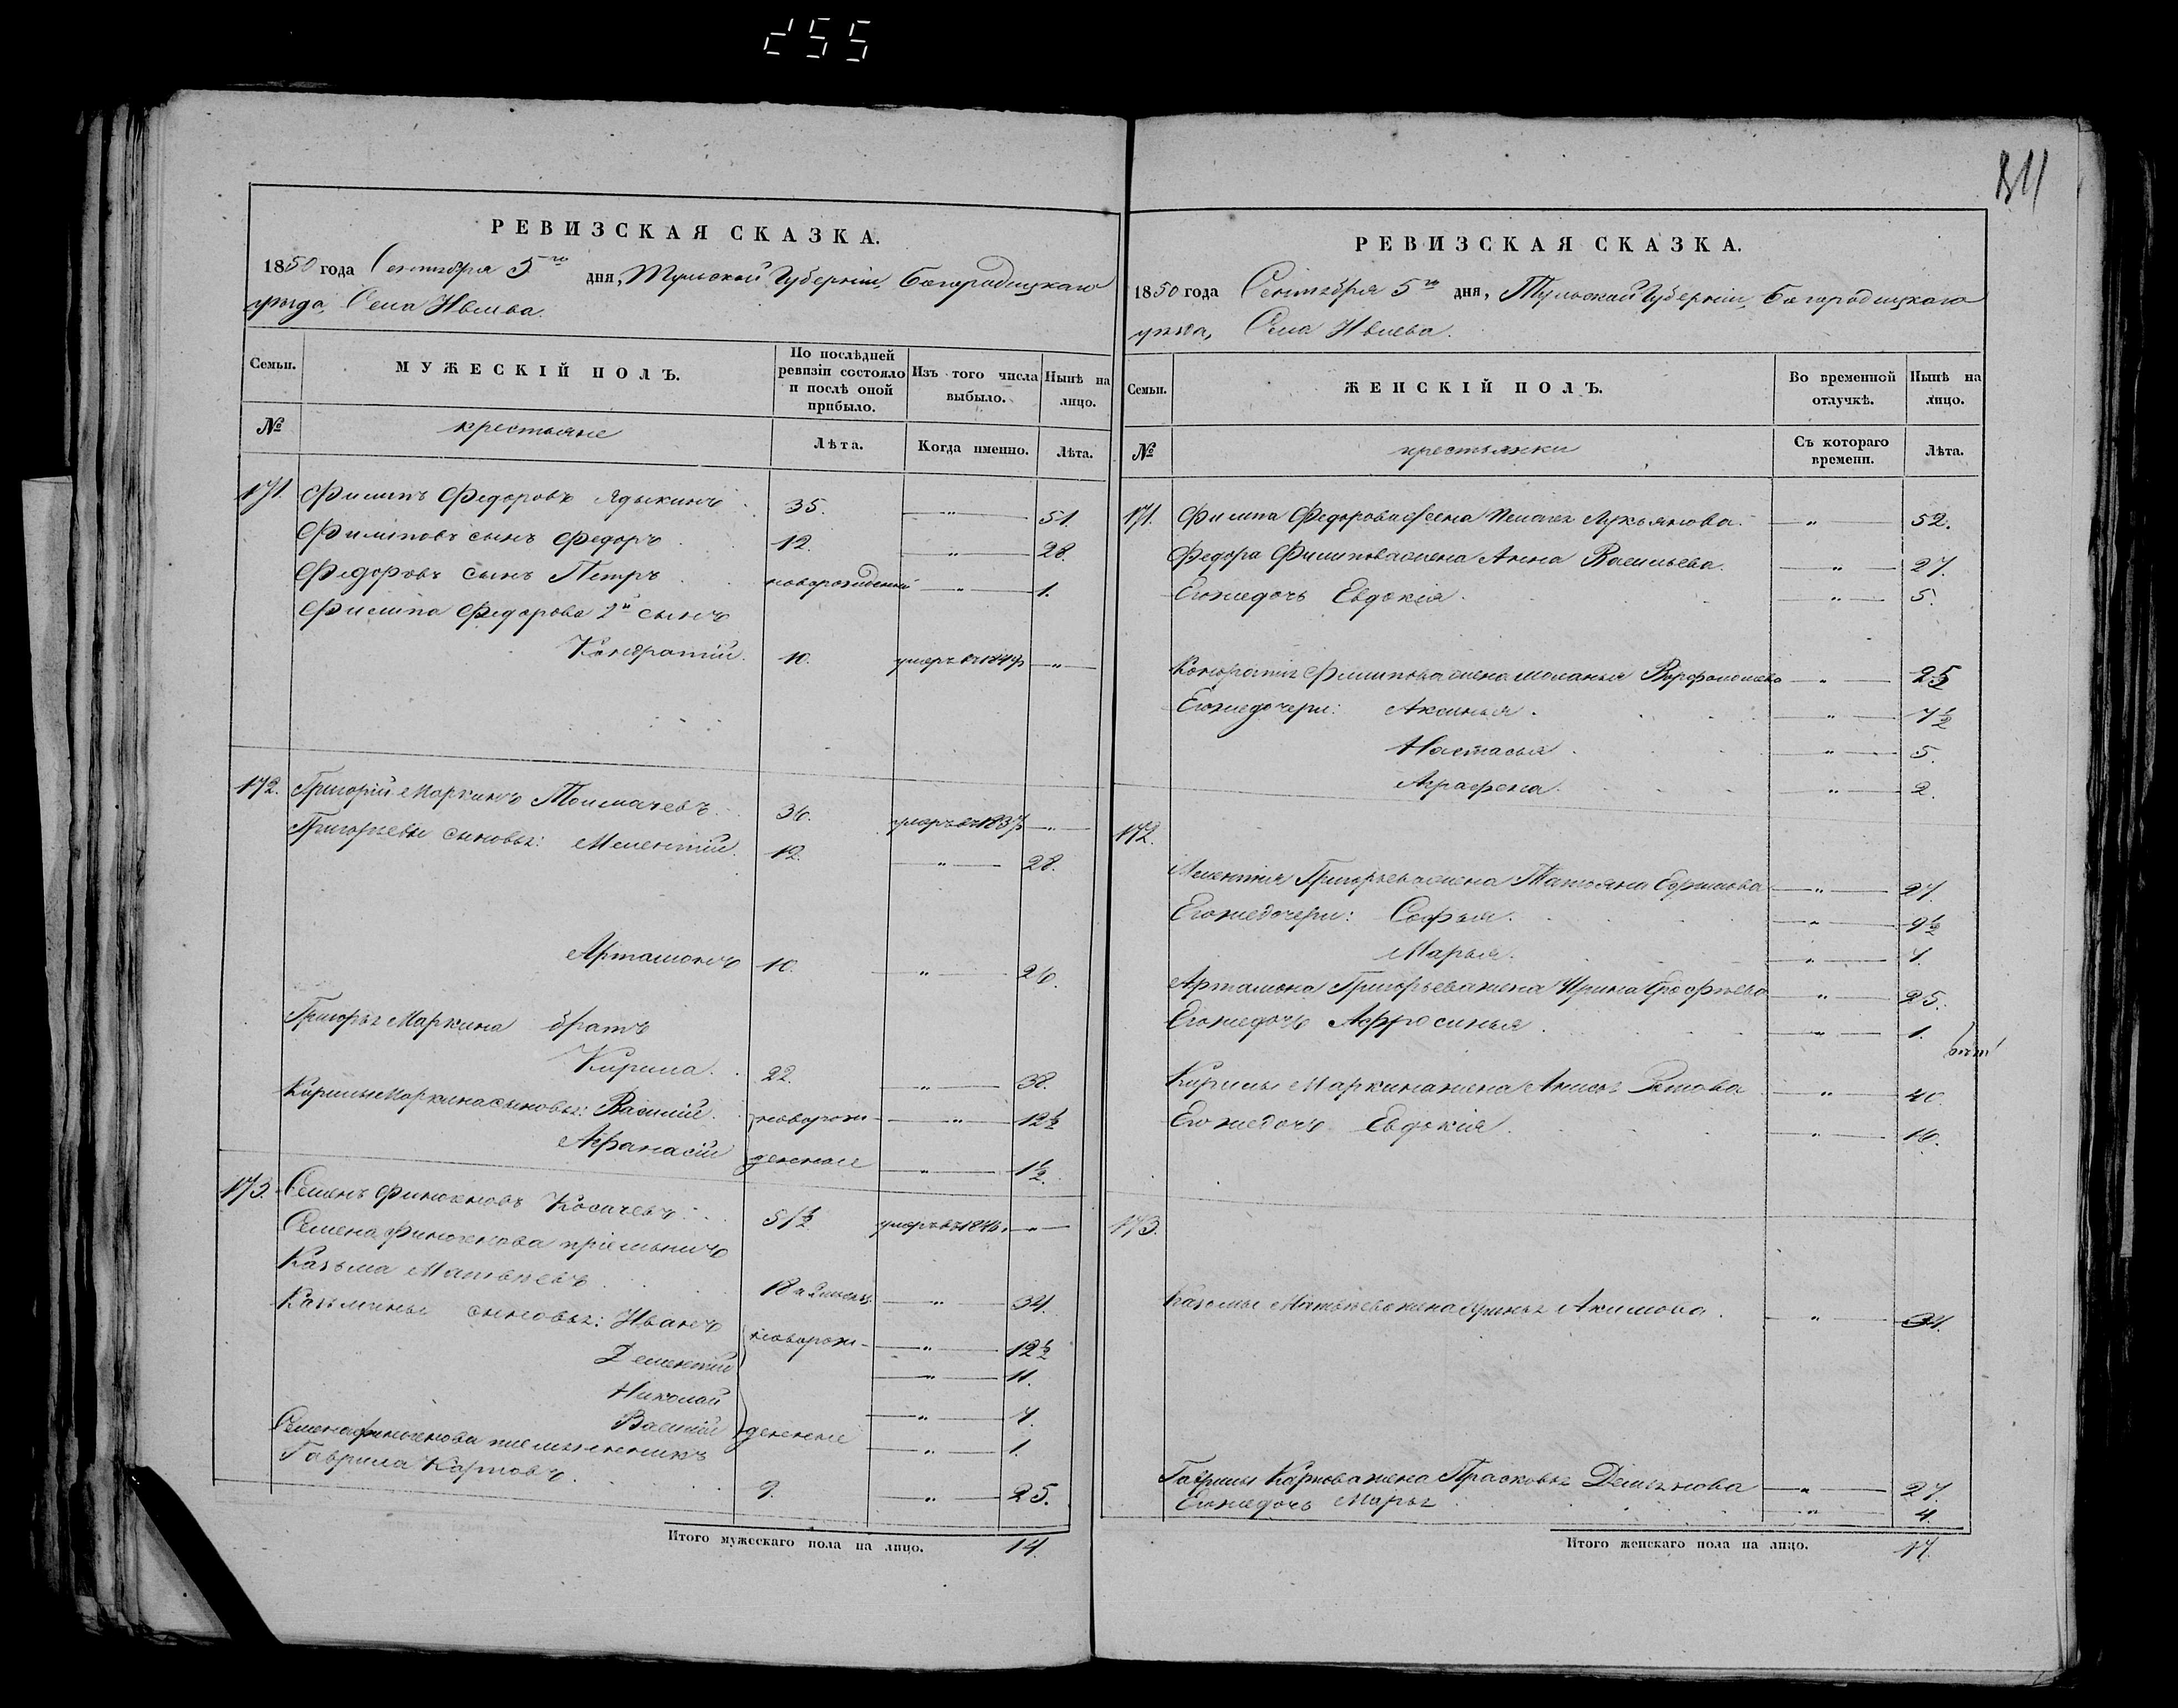 255
311
РЕВИЗСКАЯ СКАЗКА.
1850 года Сентября 5го дня, Тульской Губернiи, Богородицкаго
уѣзда, Села Ивлева.
Семьи.
МУЖЕСКІЙ ПОЛЪ.
По послѣдней ревизіи состояло и послѣ оной прибыло.
Изъ того числа выбыло.
Нынѣ на лицо.
№
крестьяне
Лѣта.
Когда именно.
Лѣта.
171. Филипъ Федоровъ Ядыкинъ 35. — " — 51.
Филиповъ сынъ Федоръ 12. — " — 28.
Федоровъ сынъ Петръ новорожденный — " — 1.
Филипа Федорова 2й сынъ
Кондратiй. 10. умеръ въ 1849 — " —
172. Григорiй Маркинъ Толмачевъ. 36. умеръ въ 1837 — " —
Григорьевы сыновья: Мелентiй. 12. — " — 28.
Артамонъ 10. — " — 26.
Григорья Маркина братъ
Кирила. 22. — " — 38.
Кирилы Маркина сыновья: Василiй. новорож- — " — 12½
Афанасiй денные — " — 1½.
173. Семенъ Финогеновъ Косачевъ. 51½ умеръ въ 1846. — " —
Семена Финогенова прiемышъ
Казьма Матвѣевъ 18 — " — 34.
Казьмины сыновья: Иванъ новорож- — " — 12½
Дементiй — " — 11.
Николай — " — 7.
Василiй денные — " — 1.
Семена Финогенова племянникъ
Гаврила Карповъ. 9. — " — 25.
Итого мужескаго пола на лицо. 14.
РЕВИЗСКАЯ СКАЗКА.
1850 года Сентября 5го дня, Тульской Губернiи, Богородицкаго
уѣзда, Села Ивлева.
Семьи.
ЖЕНСКІЙ ПОЛЪ.
Во временной отлучкѣ.
Нынѣ на лицо.
№
крестьянки
Съ котораго времени.
Лѣта.
171. Филипа Федорова жена Пелагея Лукьянова. — " — 52.
Федора Филипова жена Анна Васильева. — " — 27.
Его же дочь Евдокiя. — " — 5.
Кондратiя Филипова жена Маланья Варфоломеева — " — 25
Его же дочери: Аксинья. — " — 7½
Настасья — " — 5.
Аграфена. — " — 2.
172.
Мелентiя Григорьева жена Татьяна Ефимова — " — 27.
Его же дочери: Софья. — " — 9½
Марья. — " — 7.
Артамона Григорьева жена Ирина — " — 25.
Его же дочь Афросинья — " — 1.
Кирилы Маркина жена Анисья — " — 40.
Его же дочь Евдокiя. — " — 16.
173.
Казьмы Матвѣева жена Акимова. — " — 34.
Гаврилы Карпова жена Прасковья Демьянова — " — 27.
Его же дочь Марья — " — 4.
Итого женскаго пола на лицо. 17.